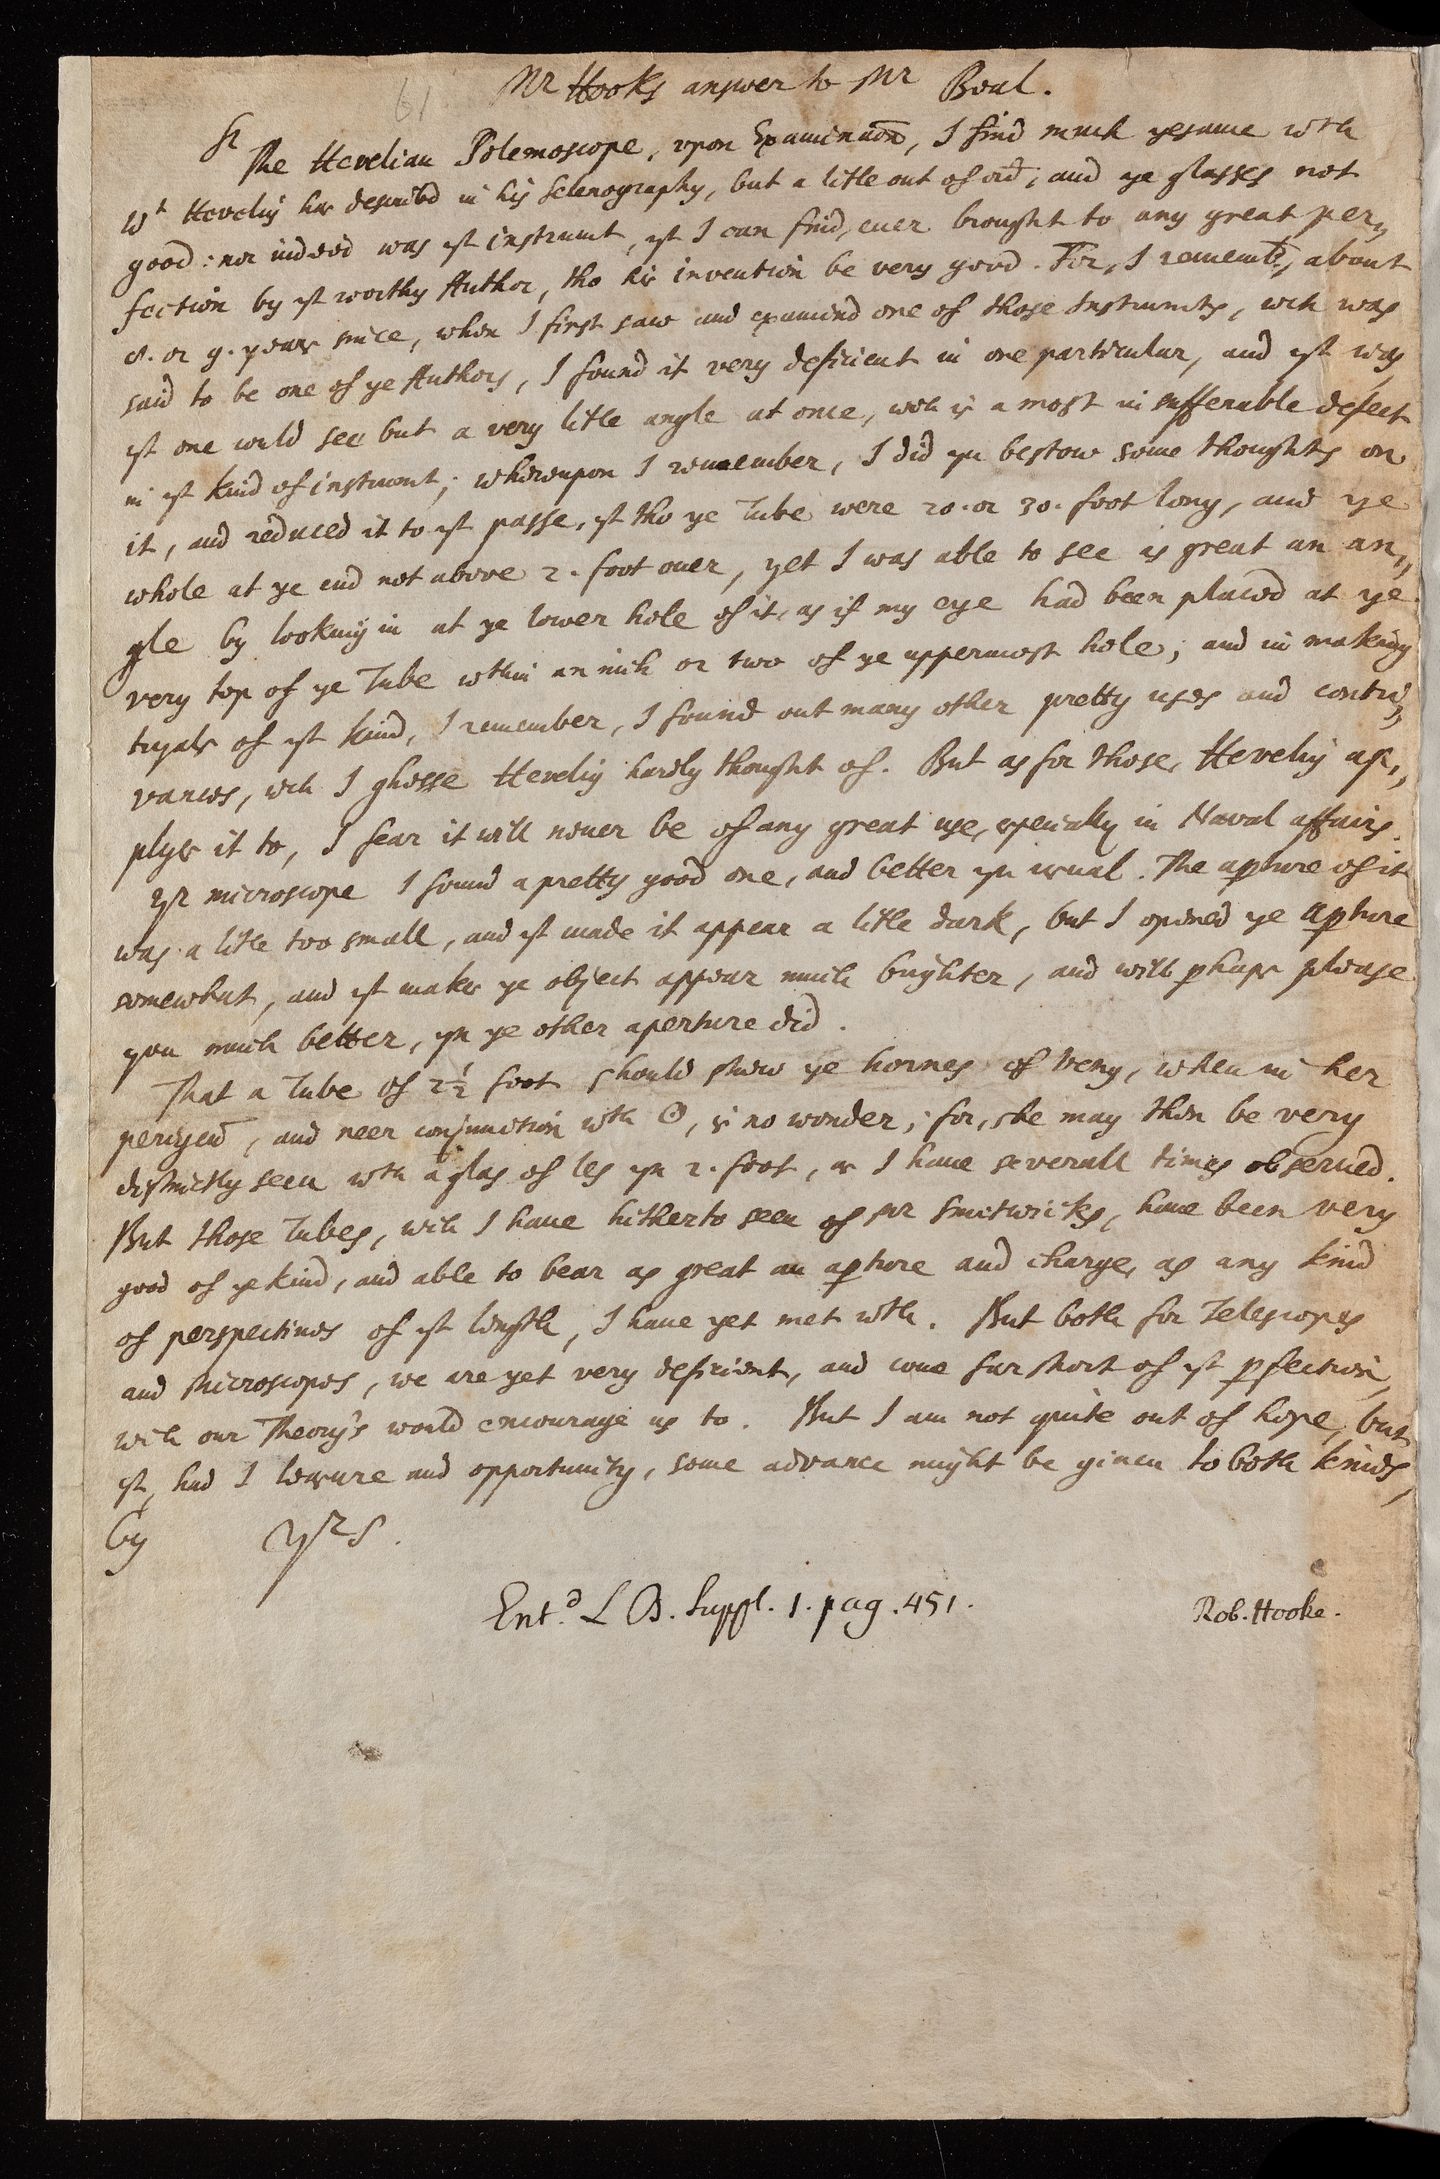 61
Mr Hooks answer to Mr Beal.
Sr
The Hevelian Polemoscope, upon Examinaon, I find much ye same wth
wt Hevelig has described in his Selenography, but a litle out of ord; and ye glasses not
good: nor indeed was yt instrumt, yt I can find, ever brought to any great per,,
fection by yt worthy Author, tho his invention be very good. For, I rememb, about
8. or 9. years since, when I first saw and examined one of those Instrumts, wch was
said to be one of ye Authors, I found it very deficient in one particular, and yt was,
yt one could see but a very litle angle at once, wch is a most insufferable defect
in yt kind of instrumt; whereupon I remember, I did yn bestow some thoughts on
it, and reduced it to yt passe, yt tho ye Tube were 20. or 30. foot long, and ye
whole at ye end not above 2. foot over, yet I was able to see as great an an,,
gle by looking in at ye lower hole of it, as if my eye had been placed at ye
very top of ye Tube wthin an inch or two of ye uppermost hole; and in making
tryals of yt kind, I remember, I found out many other pretty uses and contri,,
vances, wch I ghesse Hevelig hardly thought of. But as for those, Hevelig ap,,
plys it to, I fear it will never be of any great use, especially in Naval affairs.
Yr microscope I found a pretty good one, and better yn usual. The apture of it
was a litle too small, and yt made it appear a litle dark, but I opened ye apture
somewhat, and yt makes ye object appear much brighter, and will phaps please
you much better, yn ye other aperture did.
That a Tube of 2½ foot should shew ye hornes of Veng, when in her
perigeo, and neer conjunction wth ☉, is no wonder; for, she may then be very
distinctly seen wth a glas of les yn 2. foot, as I have severall times observed.
But those Tubes, wch I have hitherto seen of Mr Smetwicks, have been very
good of ye kind, and able to bear as great an apture and charge, as any kind
of perspectives of yt length, I have yet met wth. But both for Telescopes
and Microscopes, we are yet very deficient, and come far short of yt pfection,
wch our Theory's would encourage us to. But I am not quite out of hope, but
yt, had I leasure and opportunity, some advance might be given to both kinds,
by yrs.
Rob. Hooke.
Entd. L B. Suppl. 1. pag. 451.